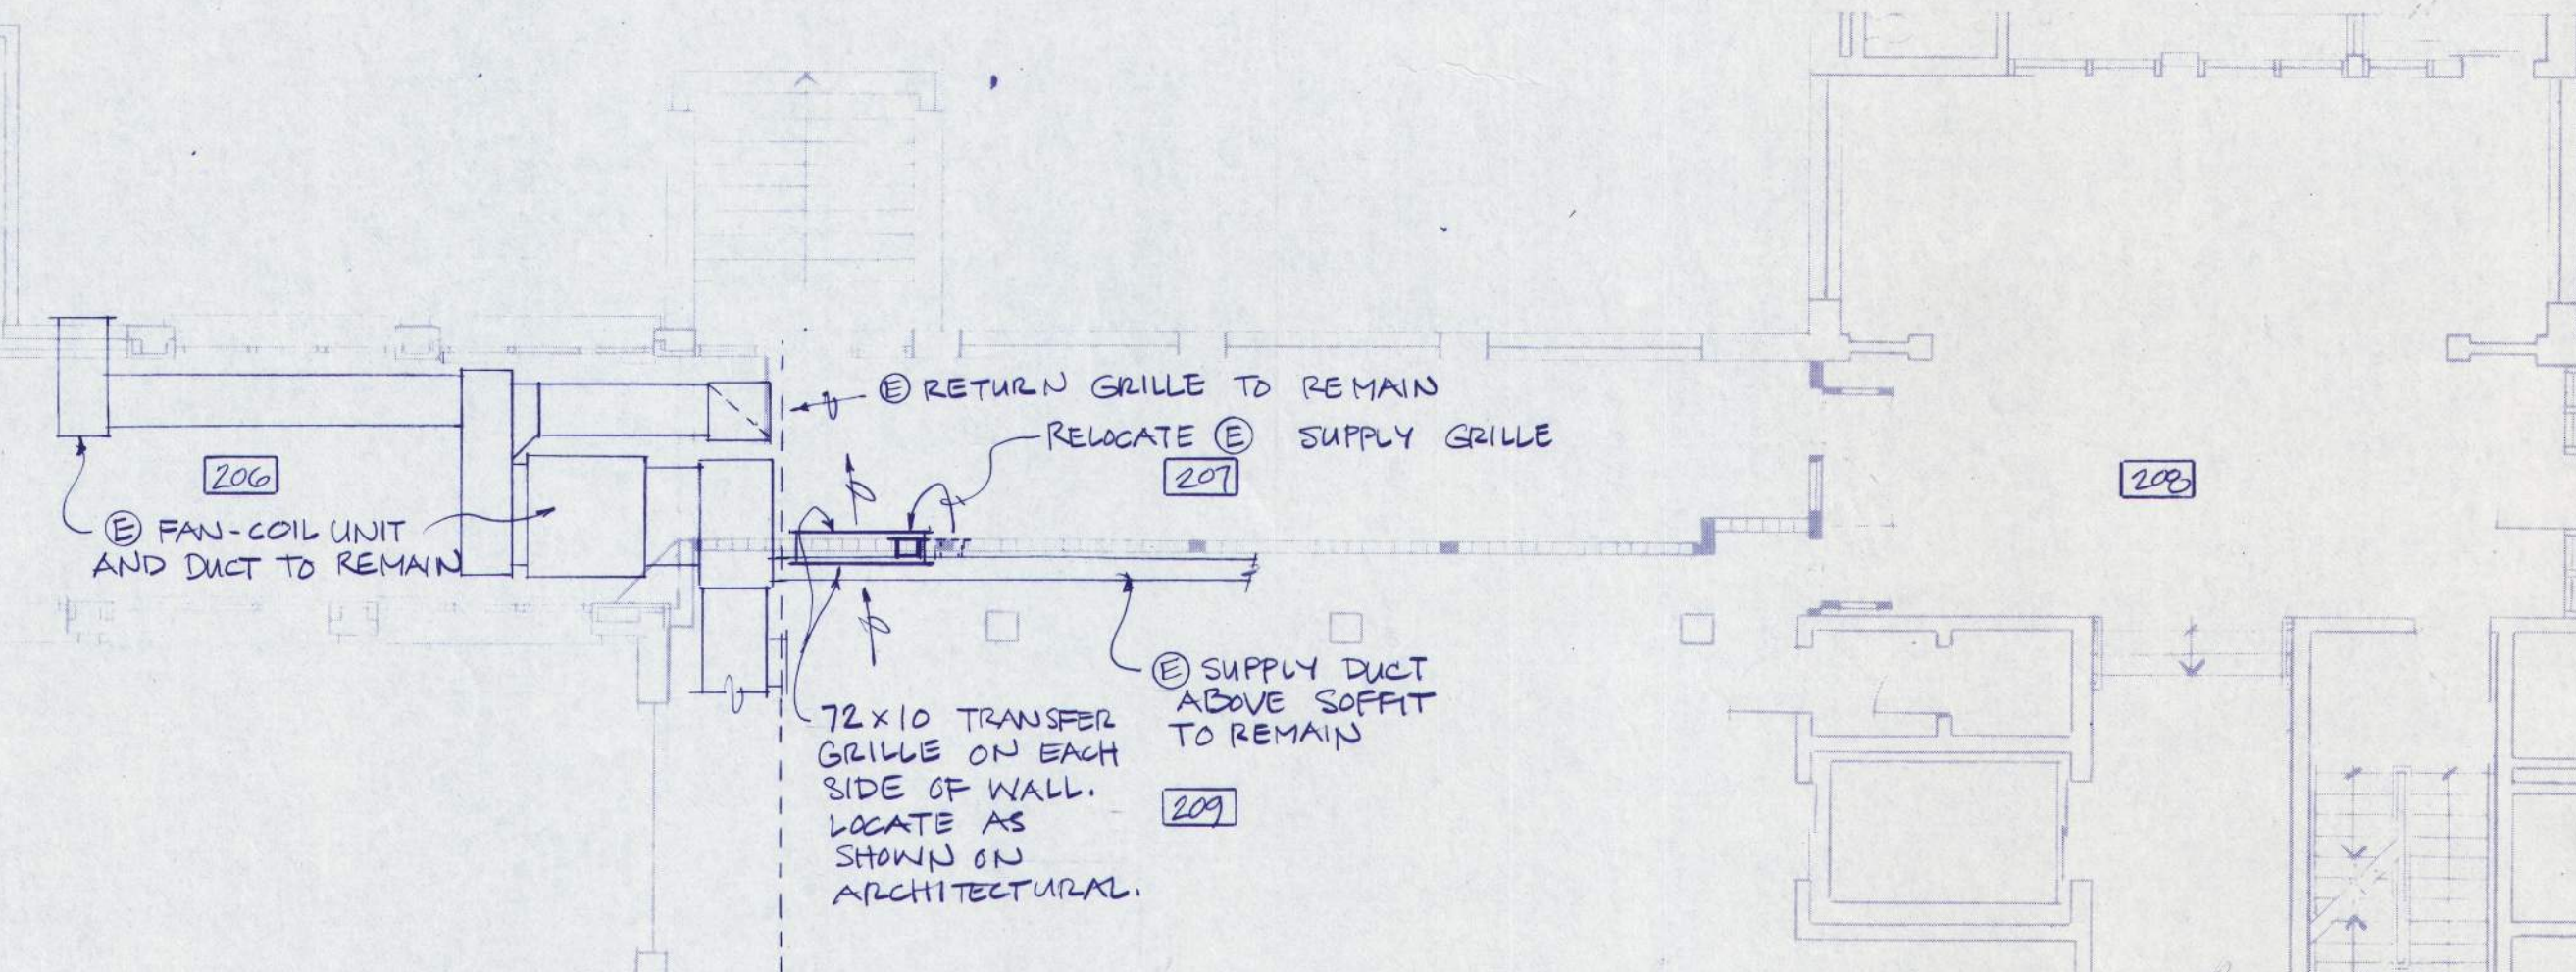 Ⓔ RETURN GRILLE TO REMAIN
RELOCATE Ⓔ SUPPLY GRILLE
206
207
208
Ⓔ FAN-COIL UNIT
AND DUCT TO REMAIN
Ⓔ SUPPLY DUCT
ABOVE SOFFIT
TO REMAIN
72x10 TRANSFER
GRILLE ON EACH
SIDE OF WALL.
LOCATE AS
SHOWN ON
ARCHITECTURAL.
209